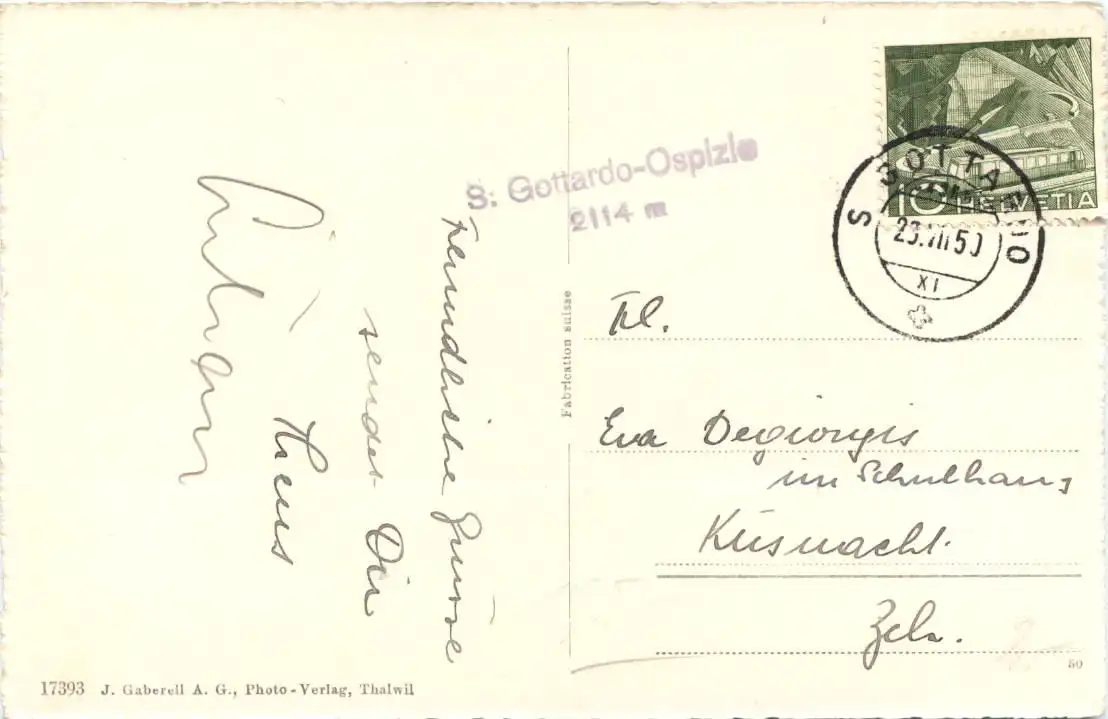 Freundliche Grüsse
sendet Dir
Hans
S. Gottardo-Ospizio
2114 m
10 HELVETIA
S. GOTTARDO
23.VII.50
XI
Frl.
Eva Degiorgis
im Schulhaus
Küsnacht.
Zch.
Fabrication suisse
17393 J. Gaberell A. G., Photo-Verlag, Thalwil
50